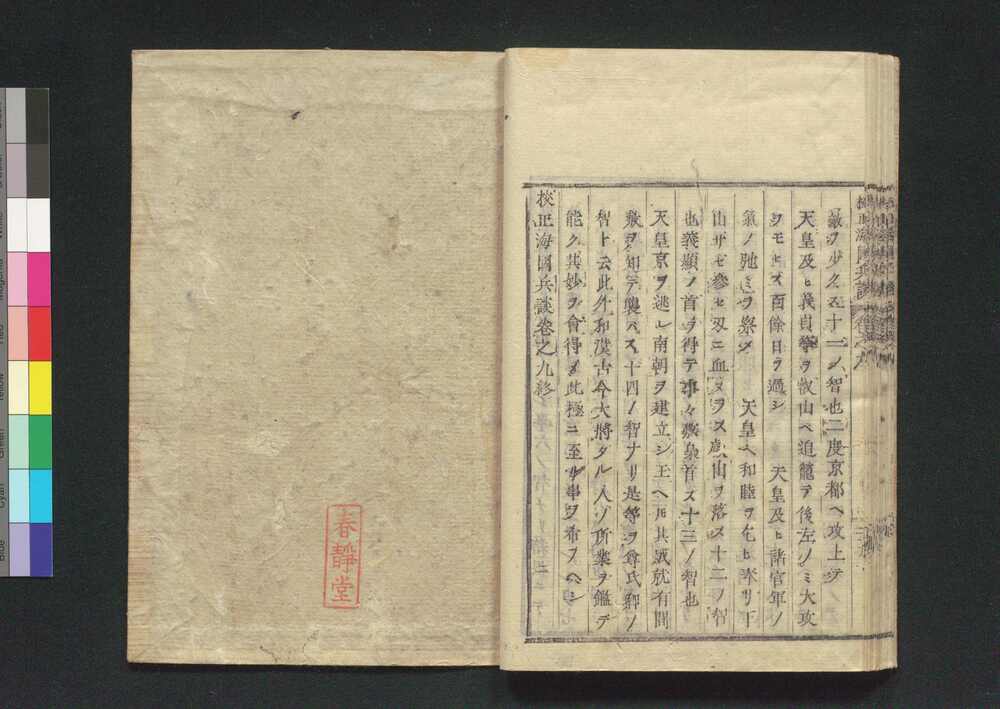 敵ヲ少クス十一ノ智也二度京都ヘ攻上テ
天皇及ヒ義貞等ヲ叡山ヘ追籠テ後左ノミ大攻
ヲモセス百餘日ヲ過シ 天皇及ヒ諸官軍ノ
氣ノ弛ミヲ察シ 天皇ヘ和睦ヲ乞ヒ奉リ下
山サセ參セ刃ニ血ヌラス叡山ヲ落ス十二ノ智
也義顯ノ首ヲ得テ事々敷梟首ス十三ノ智也
天皇京ヲ逃レ南朝ヲ建立シ玉ヘ𪜈其威就有間
敷ヲ知テ襲ハス十四ノ智ナリ是等ヲ尊氏卿ノ
智ト云此外和漢古今大將タル人ノ所業ヲ鑑テ
能ク其妙ヲ會得シ此極ニ至ル事ヲ希フヘシ
校正海國兵談卷之九終
春靜堂